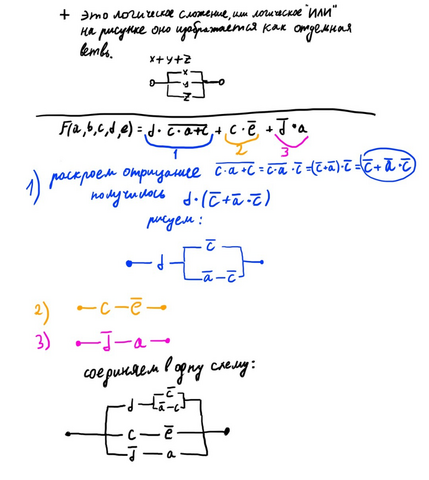 + это логическое сложение, или логическое "ИЛИ"
на рисунке оно изображается как отдельная
ветвь.
x+y+z̅
x
y
z̅
F(a,b,c,d,e) = d · c̅ ̅·̅ ̅a̅+̅c̅ + c · e̅ + d̅ · a
1 2 3
1) раскроем отрицание c̅ ̅·̅ ̅a̅ ̅+̅ ̅c̅ = c̅ ̅·̅ ̅a̅ · c̅ = (c̅+a̅) · c̅ = c̅ + a̅ · c̅
получилось d · (c̅ + a̅ · c̅)
рисуем:
c̅
d
a̅ – c̅
2) c – e̅
3) d̅ – a
соединяем в одну схему:
c̅
d a̅ – c
c – e̅
d̅ – a